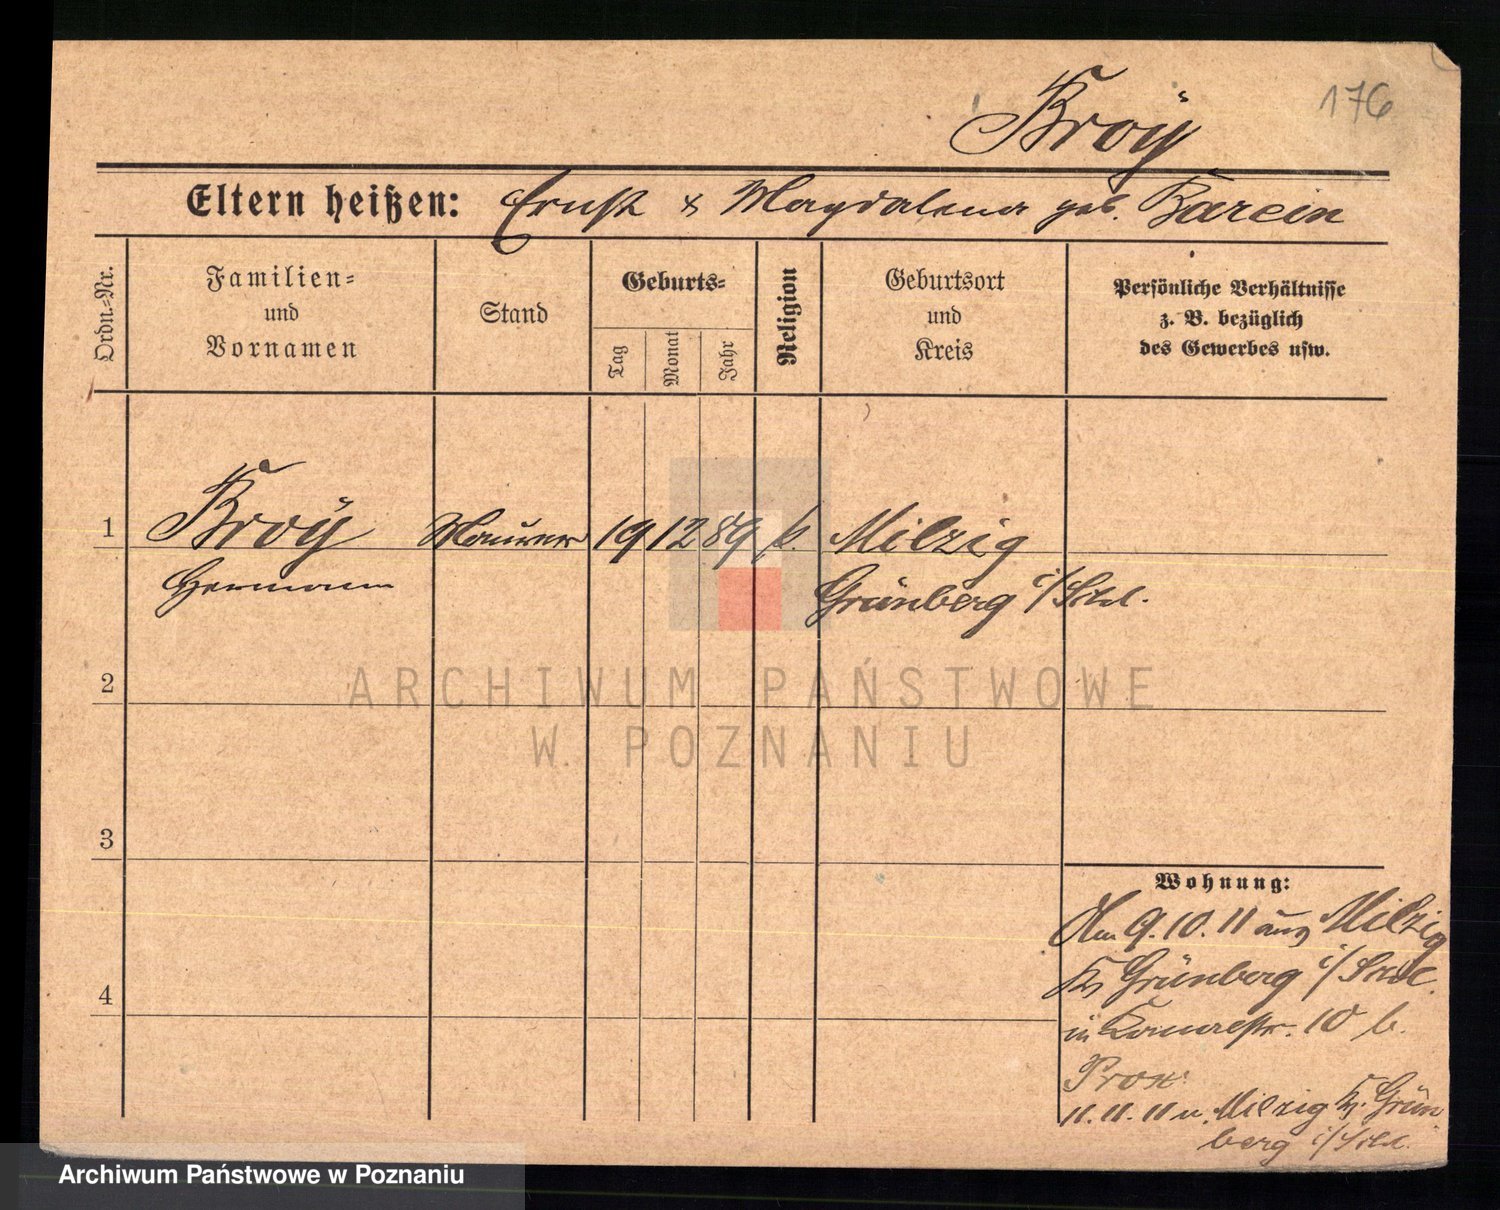 176
Kroÿ
Eltern heißen: Ernst & Magdalena geb. Barein
Ordn.-Nr.
Familien-
und
Vornamen
Stand
Geburts-
Tag
Monat
Jahr
Religion
Geburtsort
und
Kreis
Persönliche Verhältnisse
z. B. bezüglich
des Gewerbes usw.
1 Kroÿ Maurer 19 12 89 k. Milzig
Hermann Grünberg i/Schl.
2
3
4
Wohnung:
Am 9.10.11 aus Milzig
Ks Grünberg i/Schl.
in 10 b.
11.11.11 n. Milzig Ks. Grün
berg i/Schl.
ARCHIWUM PAŃSTWOWE
W POZNANIU
Archiwum Państwowe w Poznaniu